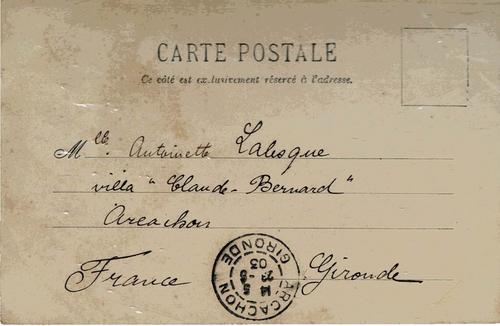 CARTE POSTALE
Ce côté est exclusivement réservé à l'adresse.
Mlle. Antoinette Lalesque
villa "Claude-Bernard"
Arcachon
France Gironde
ARCACHON
GIRONDE
14 5
23 -6
03